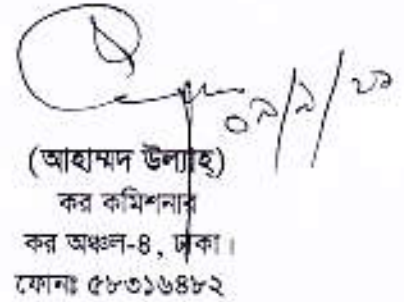 ০২/২/২১
(আহাম্মদ উল্যাহ)
কর কমিশনার
কর অঞ্চল-৪, ঢাকা।
ফোনঃ ৫৮৩১৬৪৮২